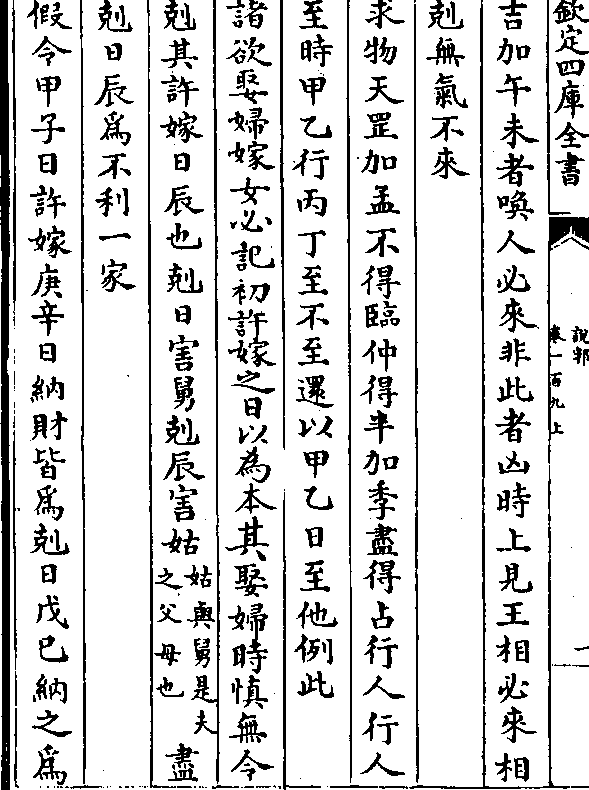 欽定四庫全書
說郛
卷一百九上
一
吉加午未者喚人必來非此者凶時上見王相必來相
剋無氣不來
求物天罡加孟不得臨仲得半加季盡得占行人行人
至時甲乙行丙丁至不至還以甲乙日至他例此
諸欲娶婦嫁女必記初許嫁之日以為本其娶婦時慎無令
剋其許嫁日辰也剋日害舅剋辰害姑姑與舅是夫之父母也盡
剋日辰為不利一家
假令甲子日許嫁庚辛日納財皆為剋日戊巳納之為